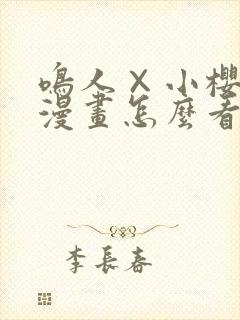 鳴人×小櫻
漫畫怎麼看
李長春